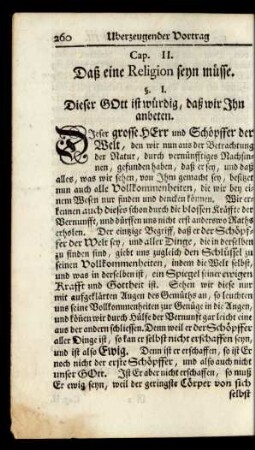 260 Uberzeugender Vortrag
Cap. II.
Daß eine Religion seyn müsse.
§. I.
Dieser GOtt ist würdig, daß wir Ihn
anbeten.
Dieser grosse HErr und Schöpffer der
Welt, den wir nun aus der Betrachtung
der Natur, durch vernünfftiges Nachsin-
nen, gefunden haben, daß er sey, und daß
alles, was wir sehen, von Ihm gemacht sey, besitzet
nun auch alle Vollkommenheiten, die wir bey ei-
nem Wesen nur finden und dencken können. Wir er-
kennen auch dieses schon durch die blossen Kräffte der
Vernunfft, und dürffen uns nicht erst anderswo Raths
erholen. Der eintzige Begriff, daß er der Schöpf-
fer der Welt sey, und aller Dinge, die in derselben
zu finden, giebt uns zugleich den Schlüssel zu
seinen Vollkommenheiten, indem die Welt selbst,
und was in derselben ist, ein Spiegel seiner ewigen
Krafft und Gottheit ist. Sehen wir diese nur
mit aufgeklärten Augen des Gemüths an, so leuchten
uns seine Vollkommenheiten zur Genüge in die Augen,
und können wir durch Hülfe der Vernunft gar leicht eine
aus der andern schliessen. Denn weil er der Schöpffer
aller Dinge ist, so kan er selbst nicht erschaffen seyn,
und ist also Ewig. Denn ist er erschaffen, so ist Er
noch nicht der erste Schöpffer, und also auch nicht
unser GOtt. Ist Er aber nicht erschaffen, so muß
Er ewig seyn, weil der geringste Cörper von sich
selbst